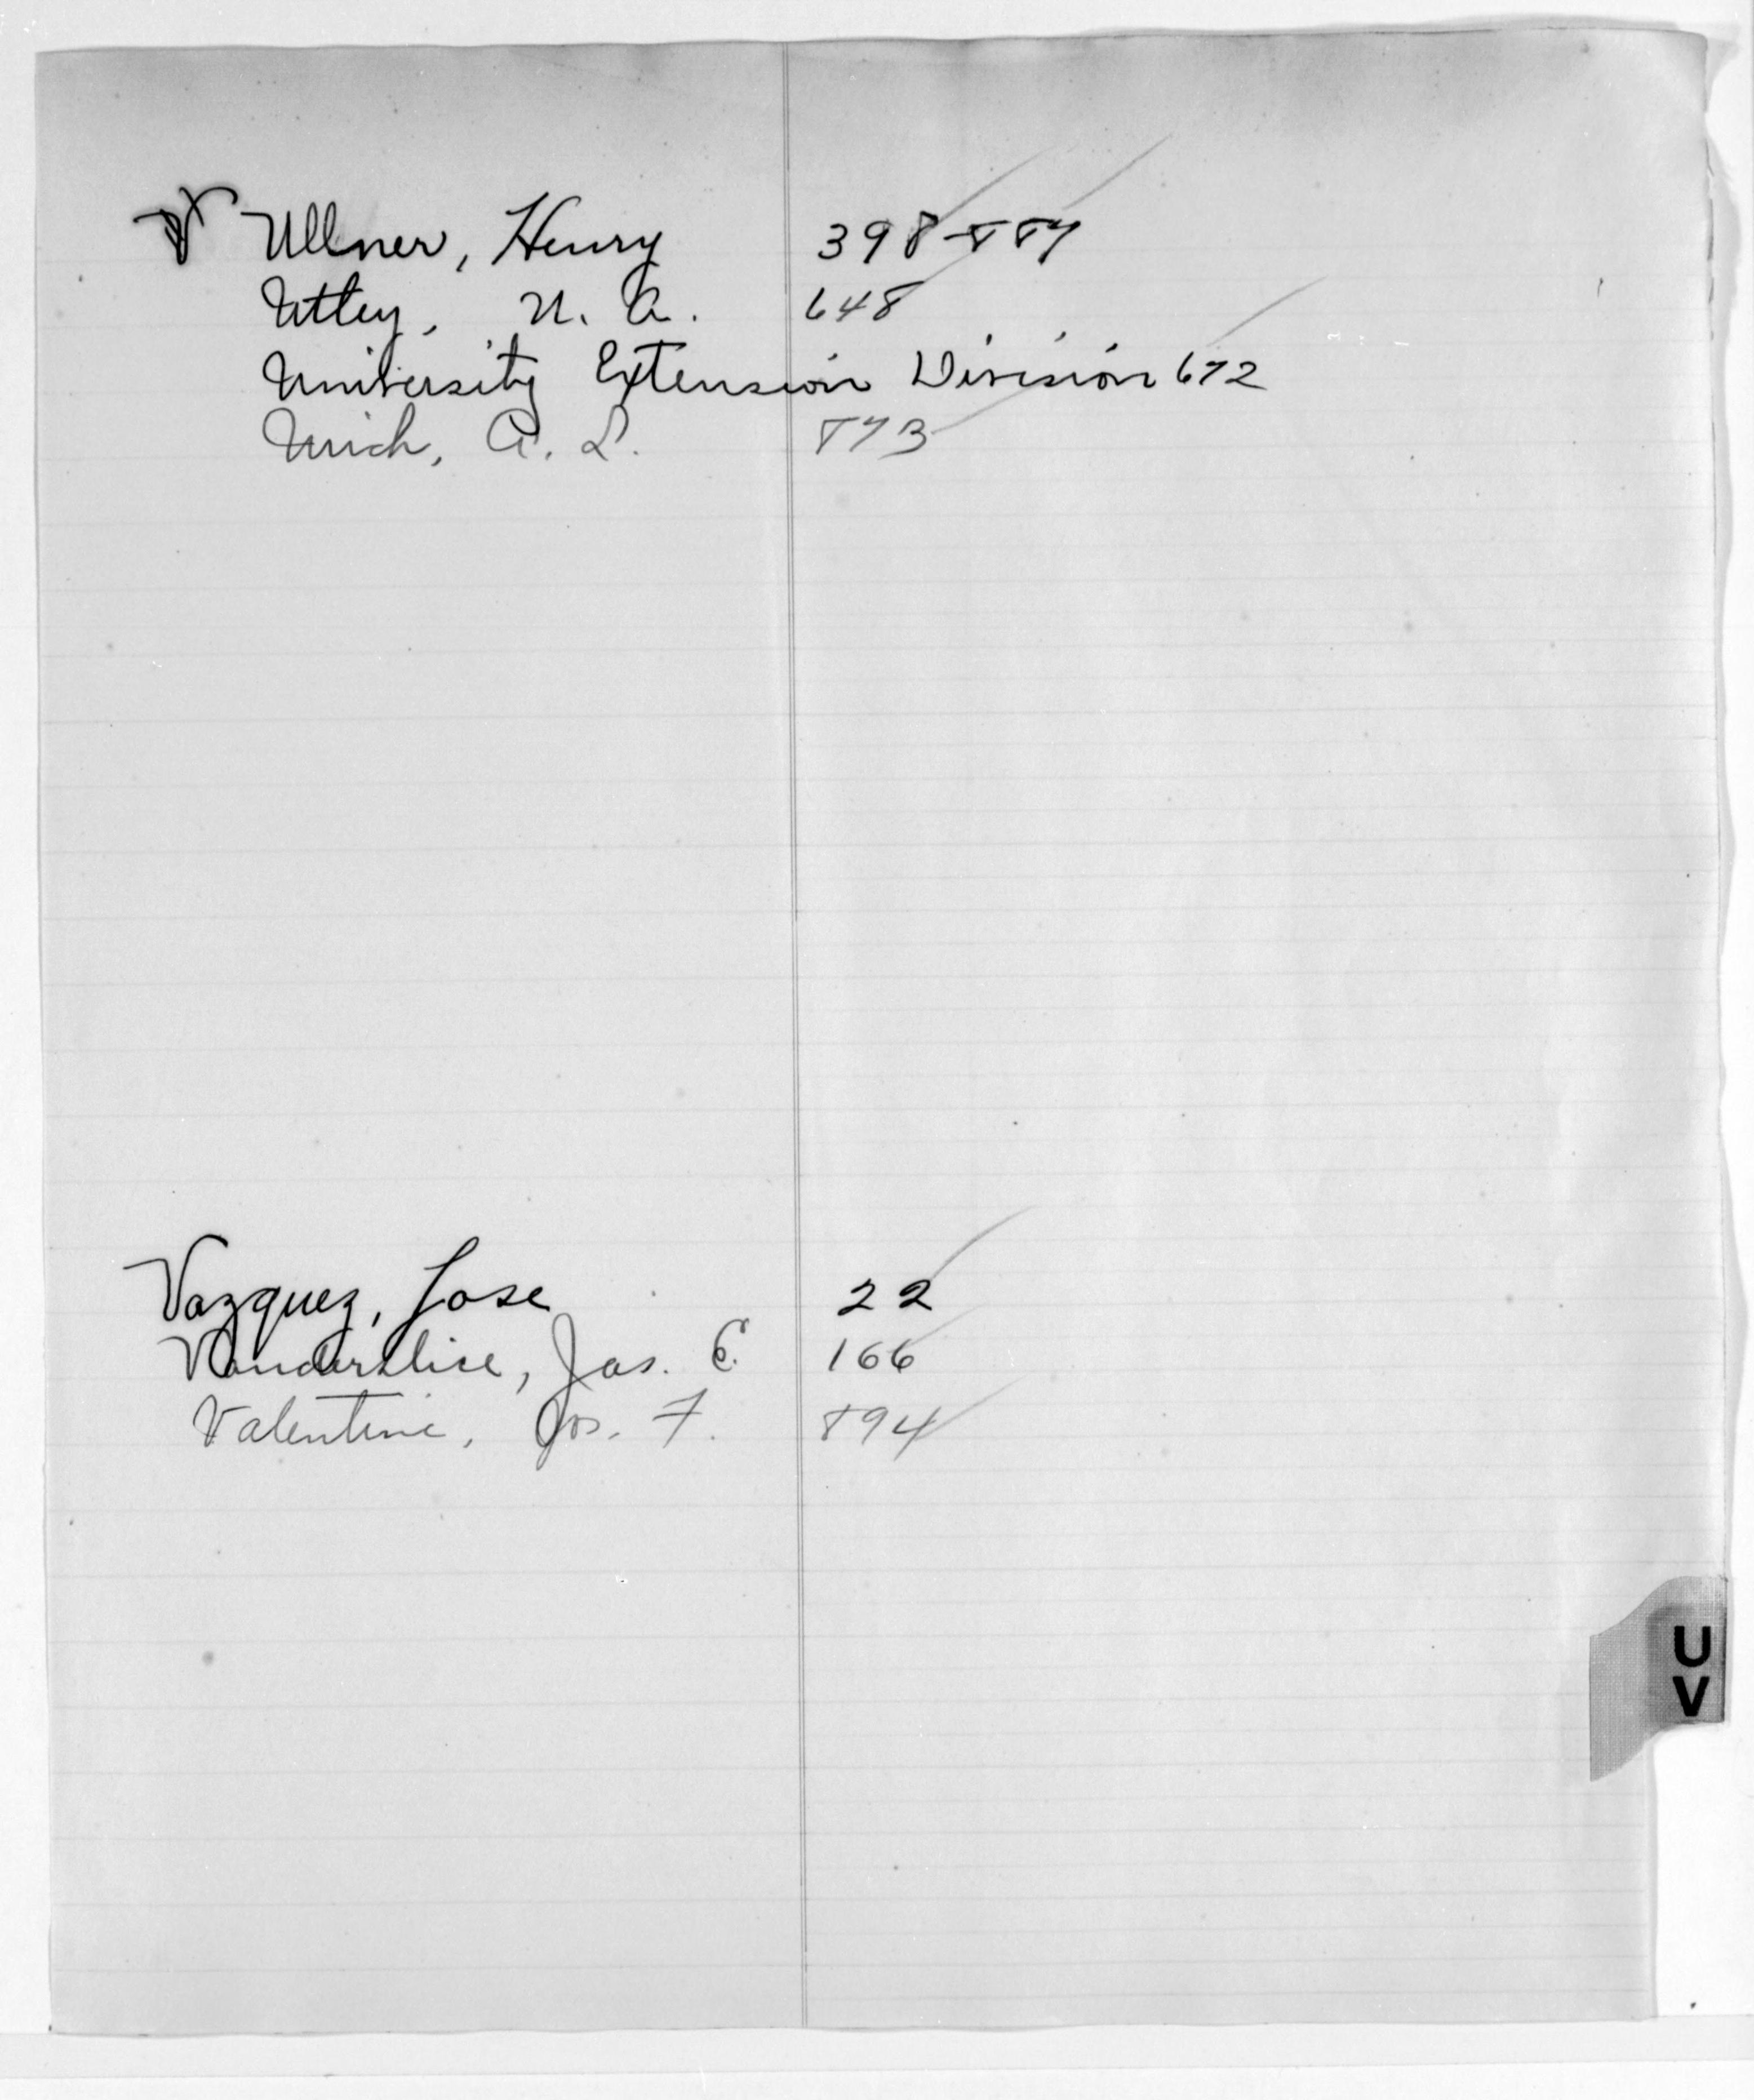 Ullner, Henry 398-887
Utley, U. A. 648
University Extension Division 672
A. L. 873
Vazquez, Jose 22
Vanderslice, Jas. E. 166
Valentine, Jos. F. 894
U
V